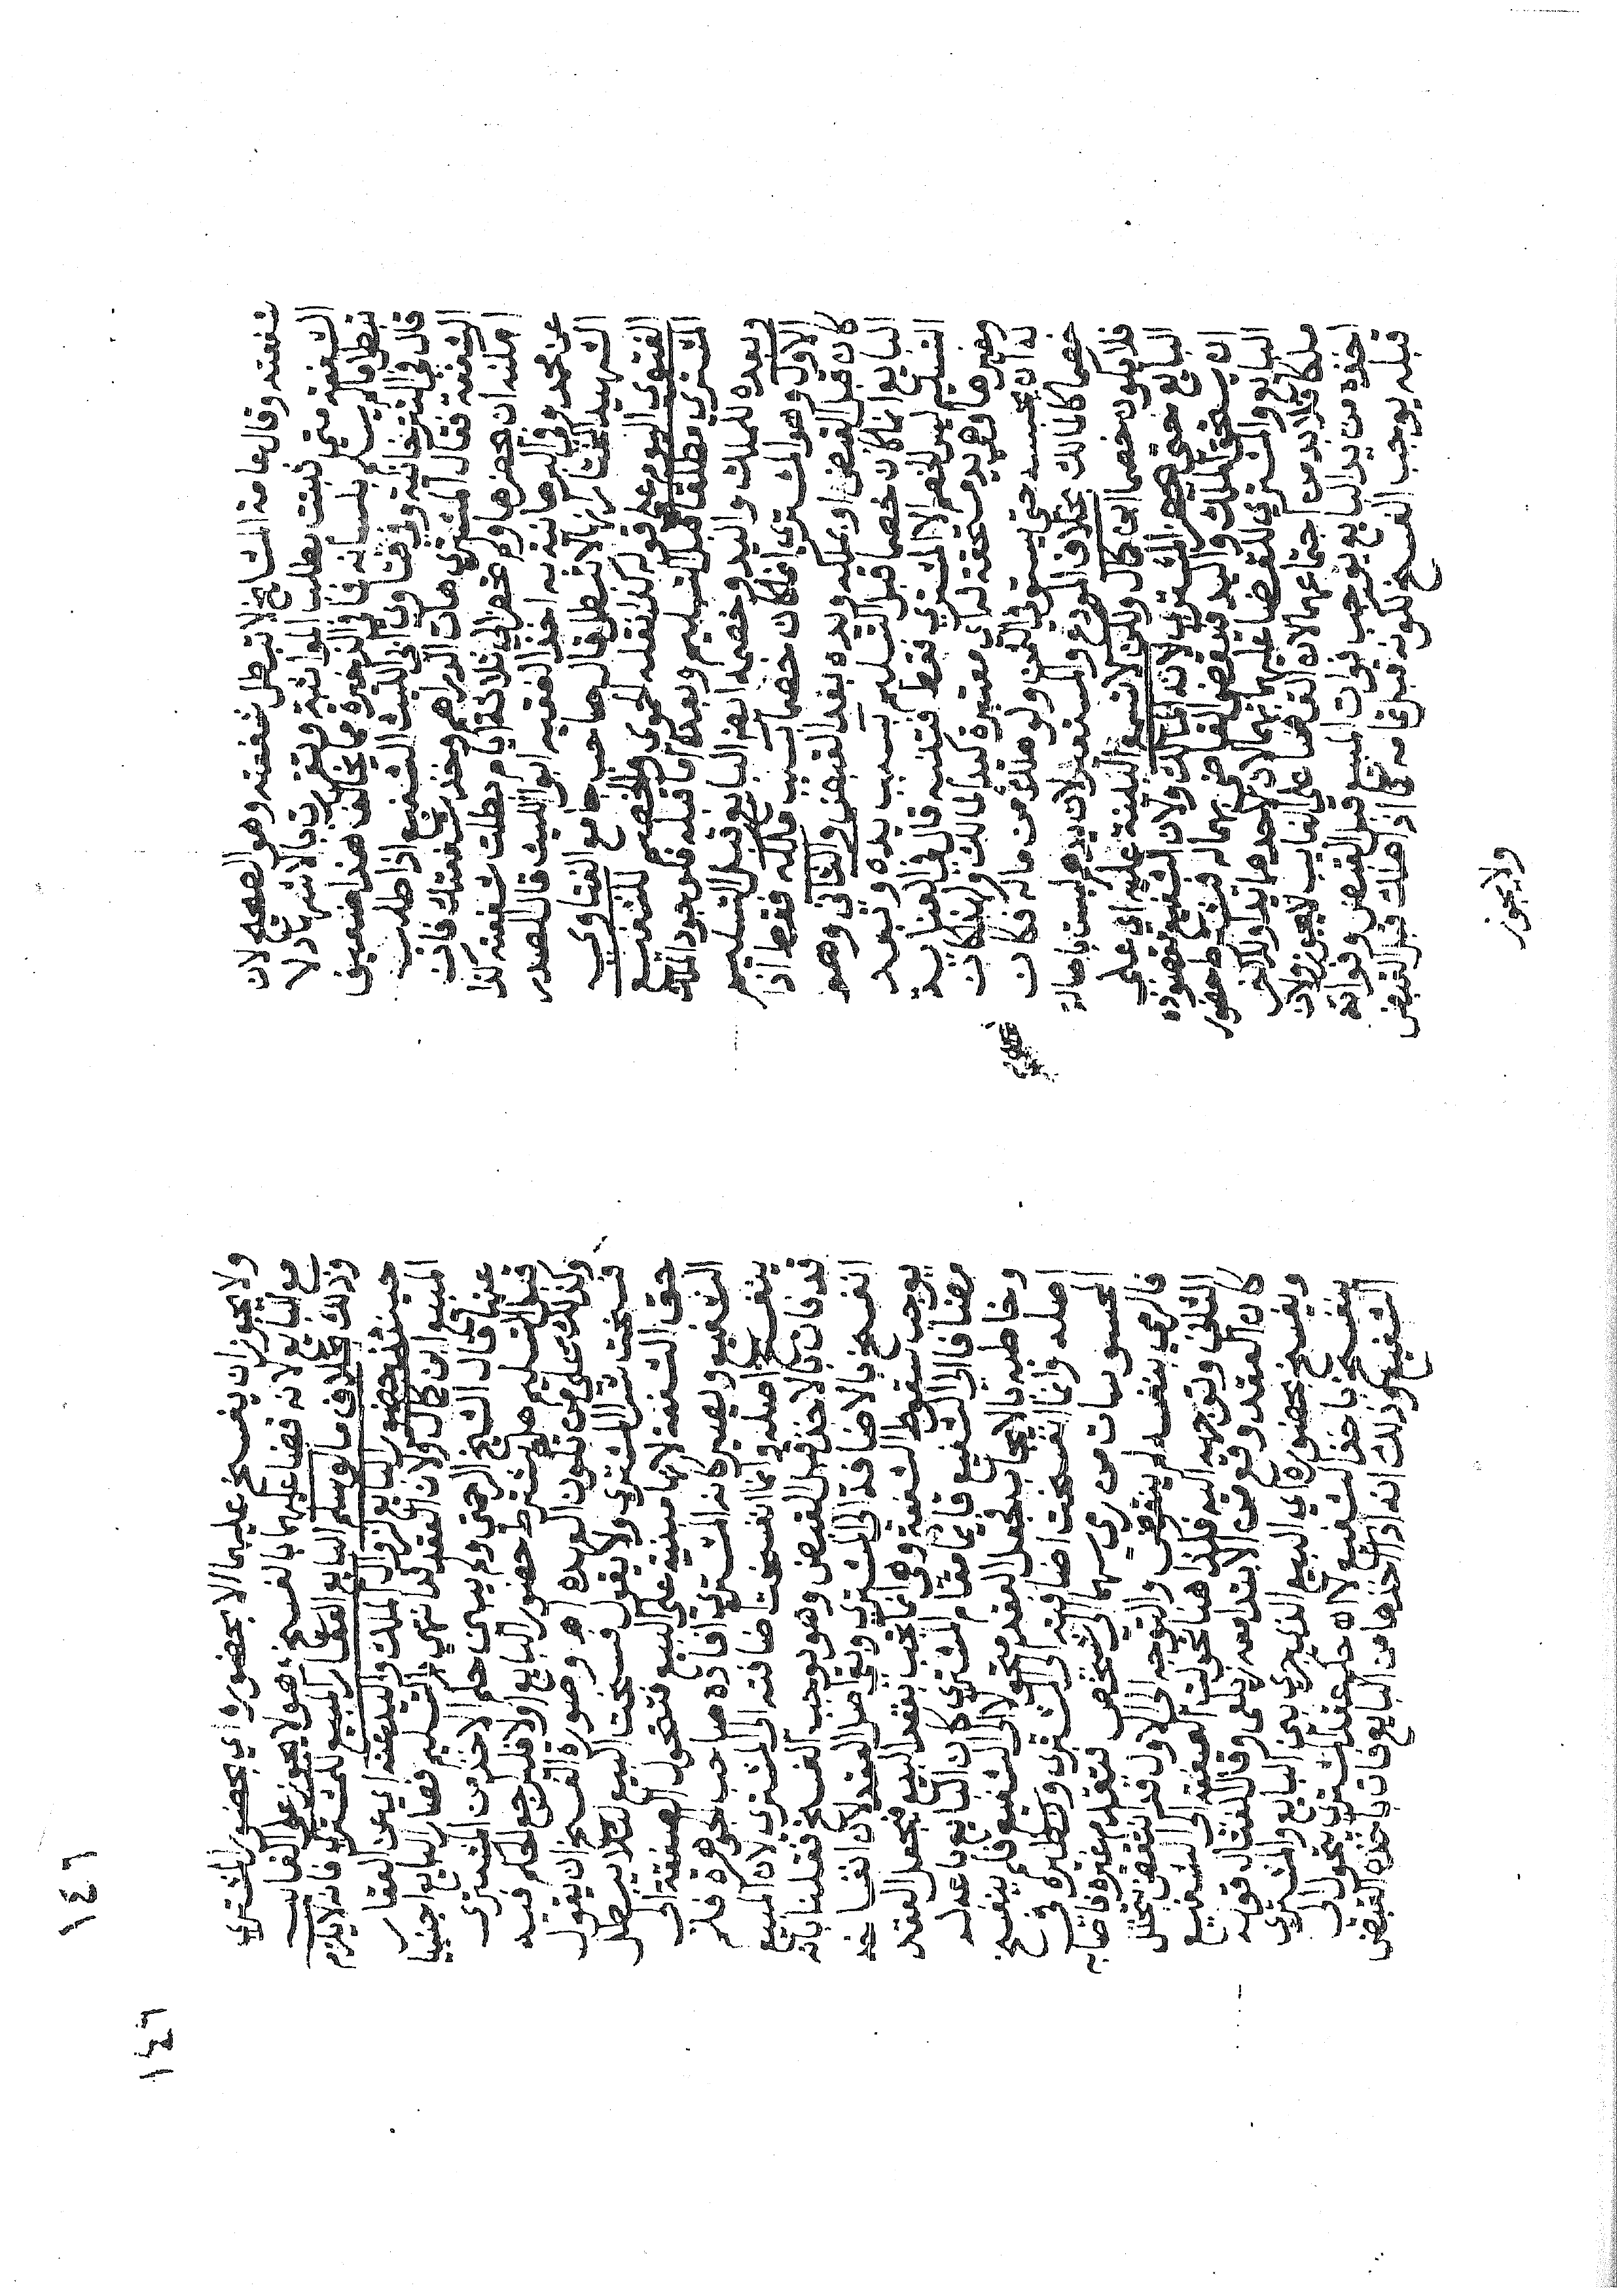 شفعته وقال عامة المشايخ لا تبطل شفعته وهو الصحيح لان
الشفعة متى ثبتت بطلب المواثبة وتقررت بالاشهاد لا
تبطل ما لم يسلم بلسانه فما في الذخيرة مما يخالف هذا ضعيف
قال في التترخانية وفي فتاوى ابي الليث الشفيع اذا طلب
الشفعة فقال المشتري هات الدراهم وخذ شفعتك فان
امكنه ان يحضرها ولم يحضر الى ثلاثة ايام بطلت شفعته كذا
عن محمد وفي البرهانية به اخذ الفقيه ابو الليث قال الصدر
الشهيد المختار انها لا تبطل قال صاحب جامع الفتاوى
الفتوى اليوم على قوله كذا نقله الحموي والخصم للشفيع
المشتري مطلقا قبل التسليم وبعده اما قبله فلوجود الملك
وبعده للملك واليد وخصمه ايضا البايع قبل التسليم
الاول وهو المشتري انما كان خصما بسبب ملكه فقط اذا
كان قبل القبض او بملكه ويده بعد القبض والثاني وهو
البايع انما كان خصما قبل التسليم بسبب يده وبعد
التسليم ليس الخصم الا المشتري فقط فتنبه قال في العناية
وغيرها وهي يد مستحقة اي معتبرة كيد المالك ولهذا كان
له ان يحبسه حتى يستوفي الثمن ولو هلك هلك من ماله فكان
خصما كالمالك بخلاف المودع والمستعير لان يدهما ليست باصالة
فلا يكون خصما ابن كمال ولكن لا تسمع البينة عليه اي على
البايع حتى يحضر المشتري لانه المالك ولان الشفيع مقصوده
ان يستحق الملك واليد فيقضي القاضي بهما له فيشترط حضور
البايع والمشتري للقضا عليهما بهما لان لاحدهما يدا وللاخر
ملكا فلا بد من اجتماعهما لان القضا على الغايب لا يجوز ولان
اخذه من يد البايع يوجب فوات المبيع قبل القبض وفواته
قبله يوجب الفسخ لكونه قبل تمامه كما اذا هلك قبل القبض
ولا يجوز
ولا يجوز ان يفسخ عليهما الا بحضوره اي بحضور المشتري
مع البايع لانه قضا عليهما بالفسخ وهو لا يجوز على الغايب
وذلك بخلاف ما لو سلم البايع العقار المبيع للمشتري فانه لا يلزم
حينئذ حضور البايع لزوال الملك واليد عنه اي عن العقار
المبيع ابن كمال ولان العقد قد انتهى بالتسليم فصار البايع اجنبيا
عنهما كما قال الشيخ الرحمتي ولم يبين حكم الاخذ من المشتري
قبل التسليم هل يشترط حضور البايع او لا فليراجع الحكم فيه
وكذلك على من تكون العهدة اهـ وصورة الفسخ ان يقول
فسخت شرا المشتري ولا يقول فسخت البيع لئلا يبطل
حق الشفعة لانها مبنية على البيع فتتحول الصفقة الى
الشفيع ويصير كانه المشتري افاده صاحب الجوهرة فلم
ينفسخ اصله وانما انفسخت اضافته الى المشتري لان المبيع
قد فات بالاخذ قبل القبض وهو يوجب الفسخ فقلنا بانه
انفسخ بالاضافة الى المشتري وبقي اصل العقد لان انفساخه
يوجب سقوط الشفعة وهي انما تجب بعقد البيع فيجعل العقد
مضافا الى الشفيع قايما مقام المشتري كان البايع باعه له
وخاطبه بالايجاب فجعل العقد متحولا الى الشفيع فلم ينفسخ
اصله وانما انفسخت اضافته الى المشتري ونظيره في
المحسوسات من رمى سهما الى شخص فتقدم غيره فاصابه
فالرمي بنفسه لم ينقض والتوجه الى الاول قد انتقض بتخلل
الثاني وتوجه اليه فلذا هنا تحولت الصفقة الى الشفيع
كان العقد وقع من الابتدا معه زيلعي وقال القتال قوله
ويفسخ بحضوره اي البيع الذي جرى بين البايع والمشتري
ينفسخ باخذ الشفيع لان حكم عقد المشتري يتحول الى
الشفيع وذلك انه اذا اخذها من البايع فات باخذه القبض
١٤٦
١٤٦